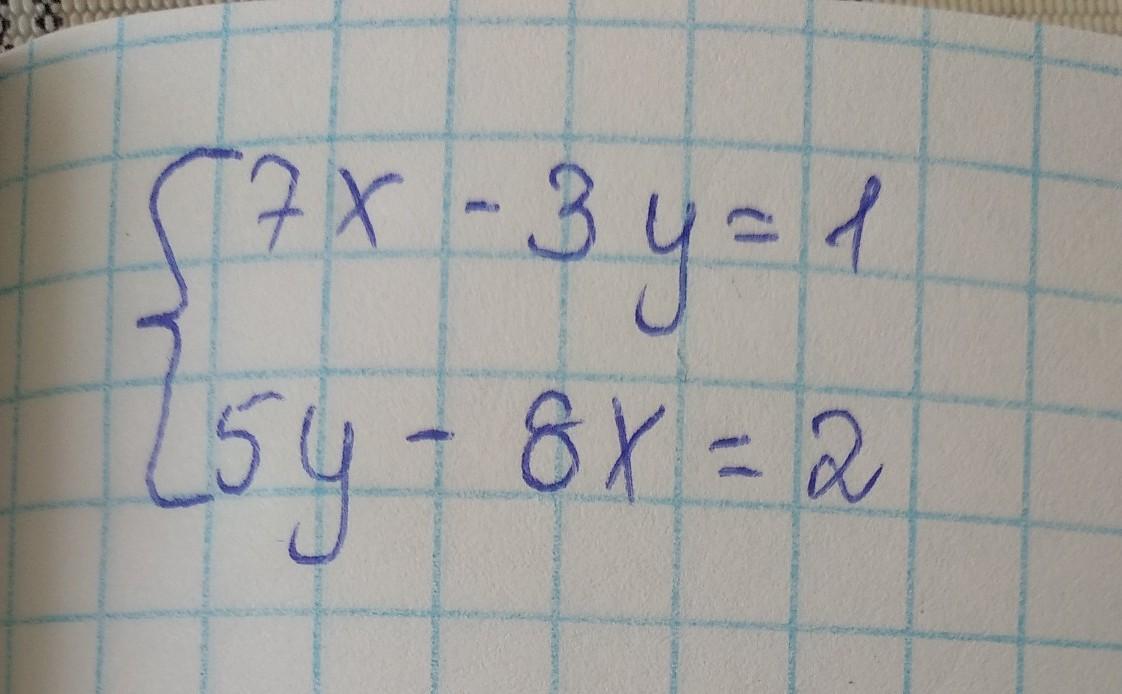 7x - 3y = 1
5y - 8x = 2